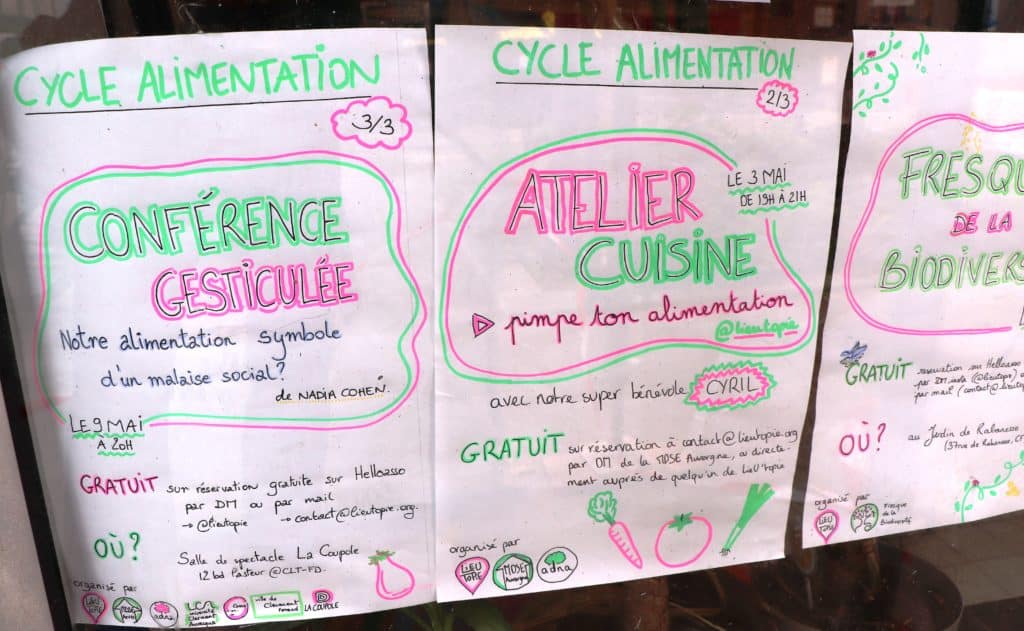 CYCLE ALIMENTATION
3/3
CONFÉRENCE
GESTICULÉE
Notre alimentation symbole
d'un malaise social?
de NADIA COHEN.
LE 9 MAI
A 20H
GRATUIT sur réservation gratuite sur Helloasso
par DM ou par mail
→ @lieutopie → contact@lieutopie.org.
OÙ?
Salle de spectacle La Coupole
12 bd Pasteur @CLT-FD.
organisé par
LIEU TOPIE
adna
ville de Clermont Ferrand
LA COUPOLE
CYCLE ALIMENTATION
2/3
ATELIER
CUISINE
LE 3 MAI
DE 19H À 21H
pimpe ton alimentation
@lieutopie
avec notre super bénévole CYRIL
GRATUIT sur réservation à contact@lieutopie.org
par DM de la MDSE Auvergne, ou directe-
ment auprès de quelqu'un de Lieu'topie
organisé par
LIEU TOPIE
MDSE Auvergne
adna
FRESQU
DE LA
BIODIVERS
GRATUIT reservation sur Helloasso
par DM insta (@lieutopie)
par mail (contact@lieutopie
OÙ? au Jardin de Rabanesse
(37 rue de Rabanesse, CF
organisé par
LIEU TOPIE
Fresque
de la
Biodiversité